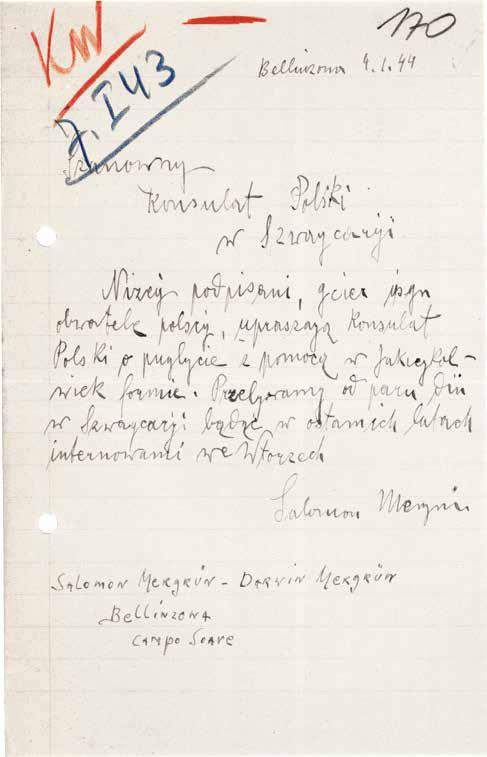 170
KW
7. I 43
Bellinzona 4.1.44
Szanowny
Konsulat Polski
w Szwaycaryi
Niżey podpisani, ojciec i syn
obwatele polscy, upraszają Konsulat
Polski o z pomocą w jakieykol-
wiek formie. Przebywamy od paru dni
w Szwaycaryi będąc w ostanich latach
internowami we Włoszech
Salomon
Salomon Mergrün - Darwin Mergrün
Bellinzona
Campo Soare